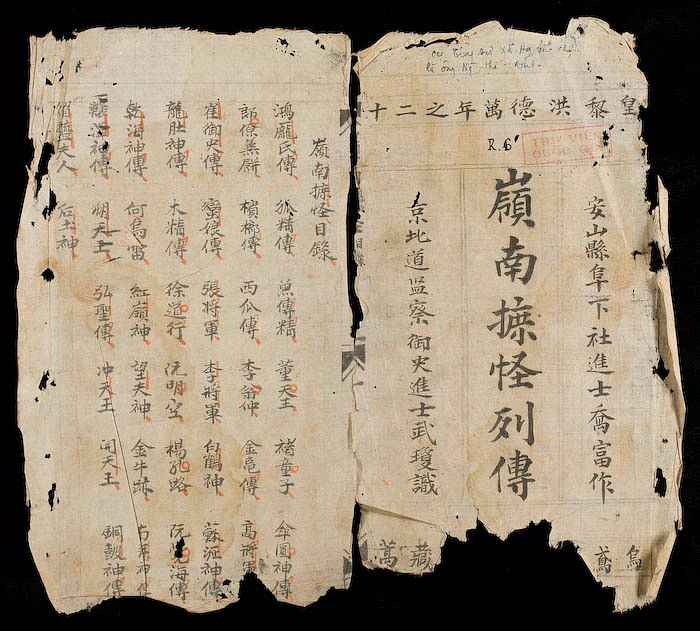 皇黎洪德萬年之二十
R.6
THƯ VIỆN
安山縣阜下社進士喬富作
嶺南摭怪列傳
京北道监察御史進士武瓊識
烏鳶
藏萬
嶺南摭怪目錄
鴻龐氏傳 狐精傳 魚傳精 董天王 褚童子 傘圓神傳
部僚蒸餅 檳榔傳 西瓜傳 李翁仲 金龟傳 高將軍
崔御史傳 蠻娘傳 張將軍 李將軍 白鶴神 蘇泒神傳
龍肚神傳 木精傳 徐道行 阮明空 楊孔路 阮覺海傳
乾海神傳 何烏雷 紅嶺神 望夫神 金牛跡
神傳 朔天王 弘聖傳 冲天王 開天王 銅皷神傳
媚醯夫人 后土神